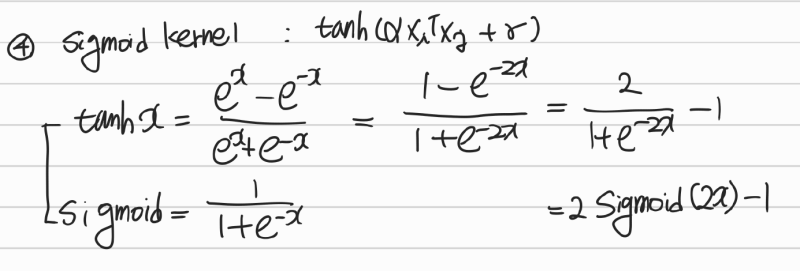 ④ sigmoid kernel : tanh(αxᵢᵀxⱼ + r)
tanh x = (e^x - e^-x)/(e^x + e^-x) = (1 - e^-2x)/(1 + e^-2x) = 2/(1 + e^-2x) - 1
sigmoid = 1/(1 + e^-x) = 2 Sigmoid(2x) - 1